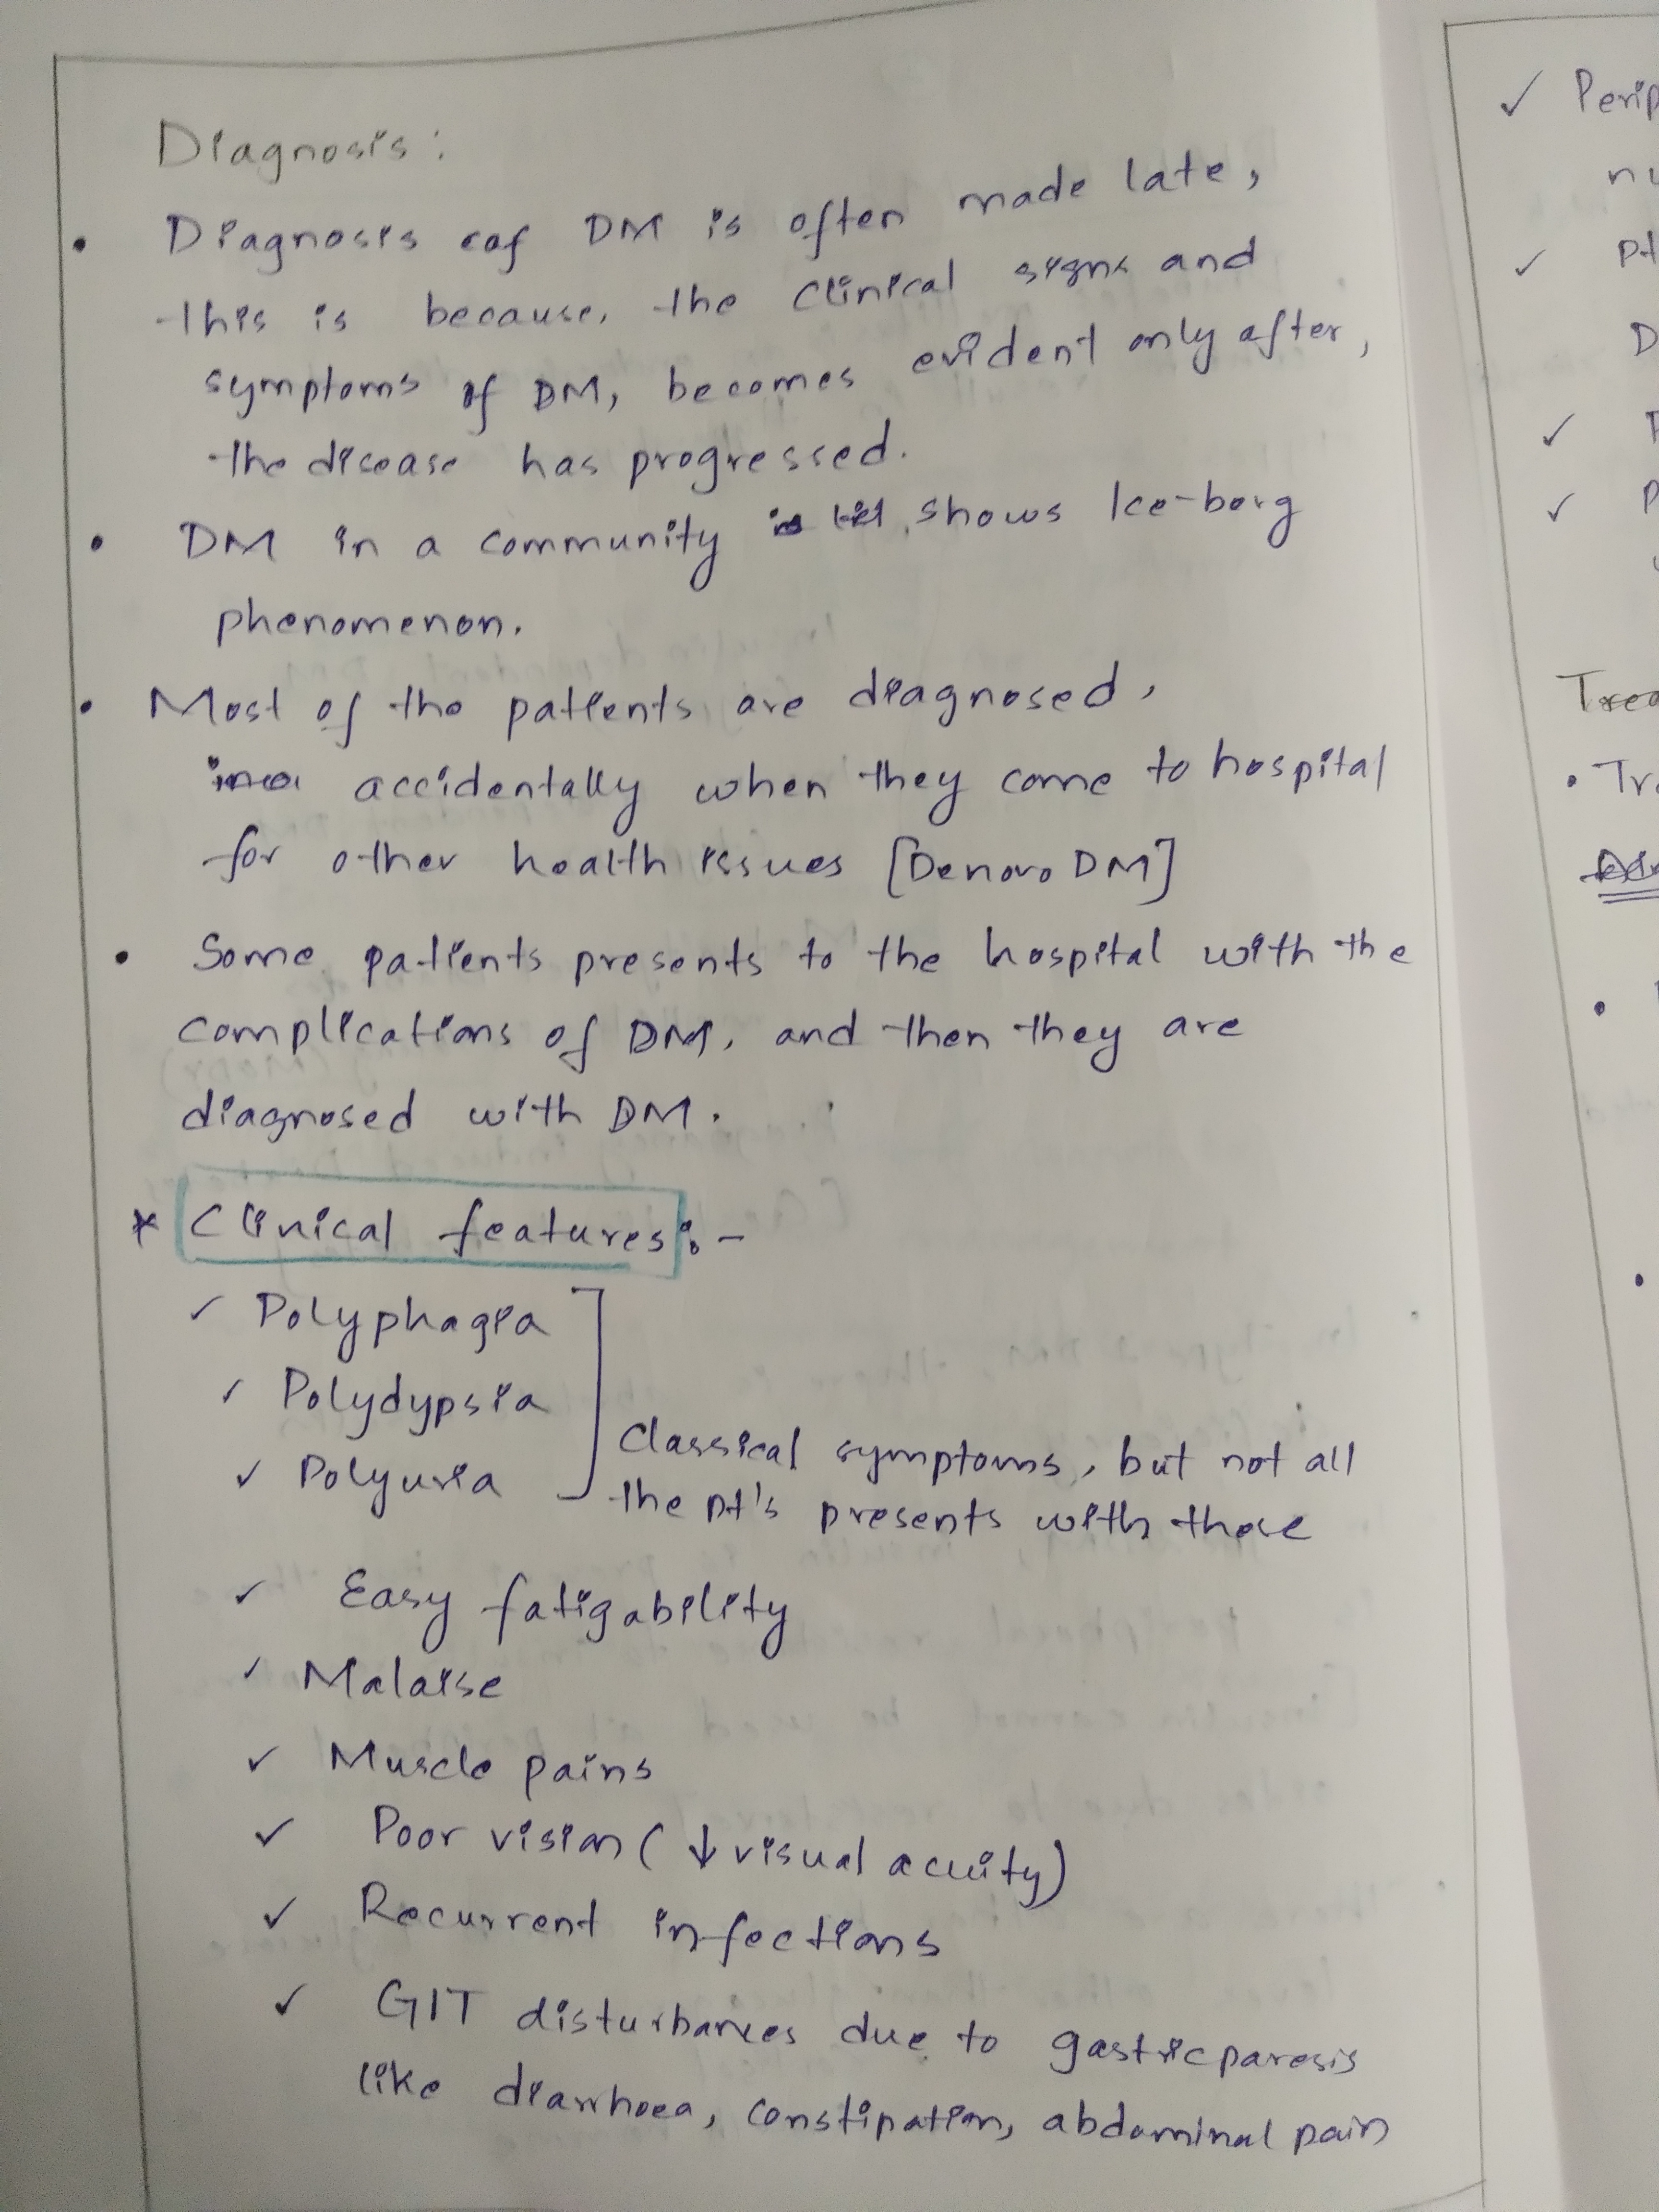 Diagnosis:
• Diagnosis of DM is often made late,
this is because, the clinical signs and
symptoms of DM, becomes evident only after,
the disease has progressed.
• DM in a community shows Ice-berg
phenomenon.
• Most of the patients are diagnosed,
accidentally when they come to hospital
for other health issues [Denovo DM]
• Some patients presents to the hospital with the
complications of DM, and then they are
diagnosed with DM.
* Clinical features :-
✓ Polyphagia
✓ Polydypsia
✓ Polyuria
Classical symptoms, but not all
the pt's presents with these
✓ Easy fatigability
✓ Malaise
✓ Muscle pains
✓ Poor vision (↓ visual acuity)
✓ Recurrent infections
✓ GIT disturbances due to gastricparesis
like diarrhoea, constipation, abdominal pain
✓ Perip
nu
✓ pt
D
✓
✓ P
Trea
• Tra